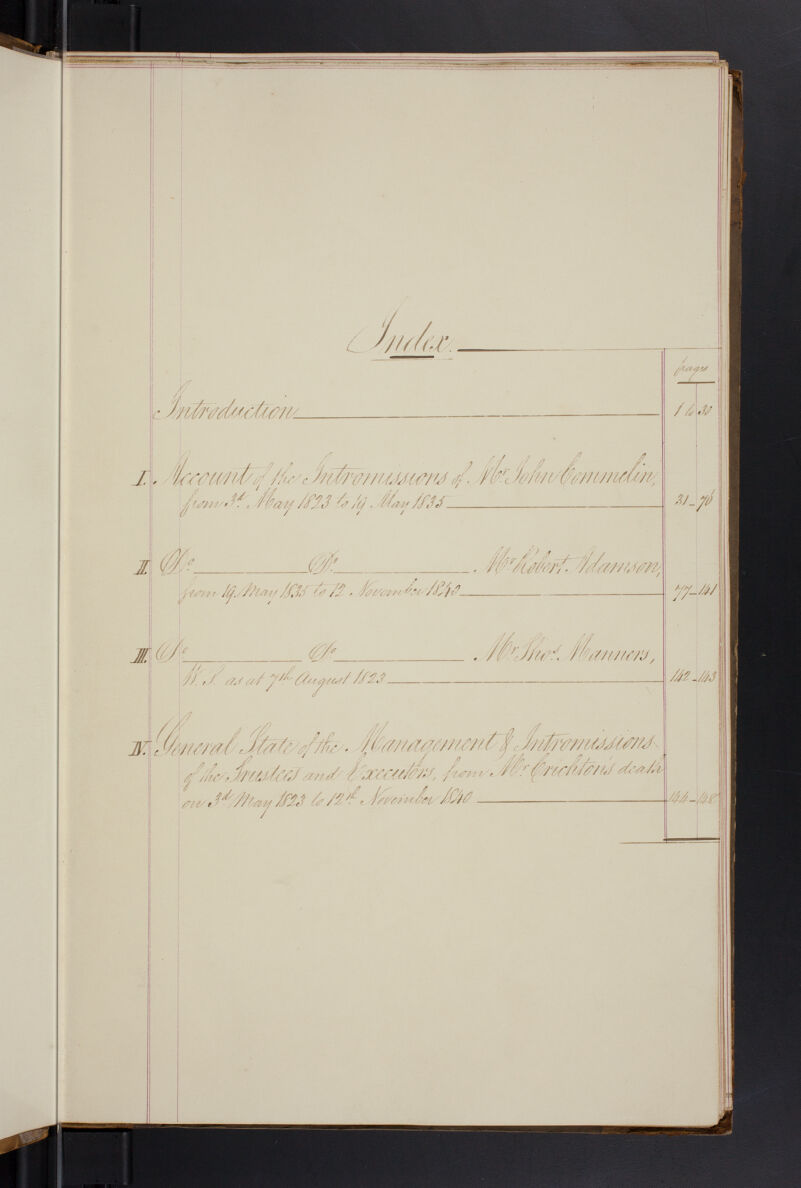 Index.
pages
Introduction 1 to 30
I. Account of the Intromissions of Mr. John Commelin,
from 3d. May 1823 to 19 May 1835 31-76
II. Do. Do. Mr. Robert Adamson,
from 19 May 1835 to 12 November 1840 77-141
III. Do Do Mr. Thos. Manners,
W.S. as at 7th August 1823 142-143
IV. General State of the Management & Intromissions
of the Trustees and Executors, from Mr. Crichton's death
on 3d. May 1823 to 12th. November 1840 144-148